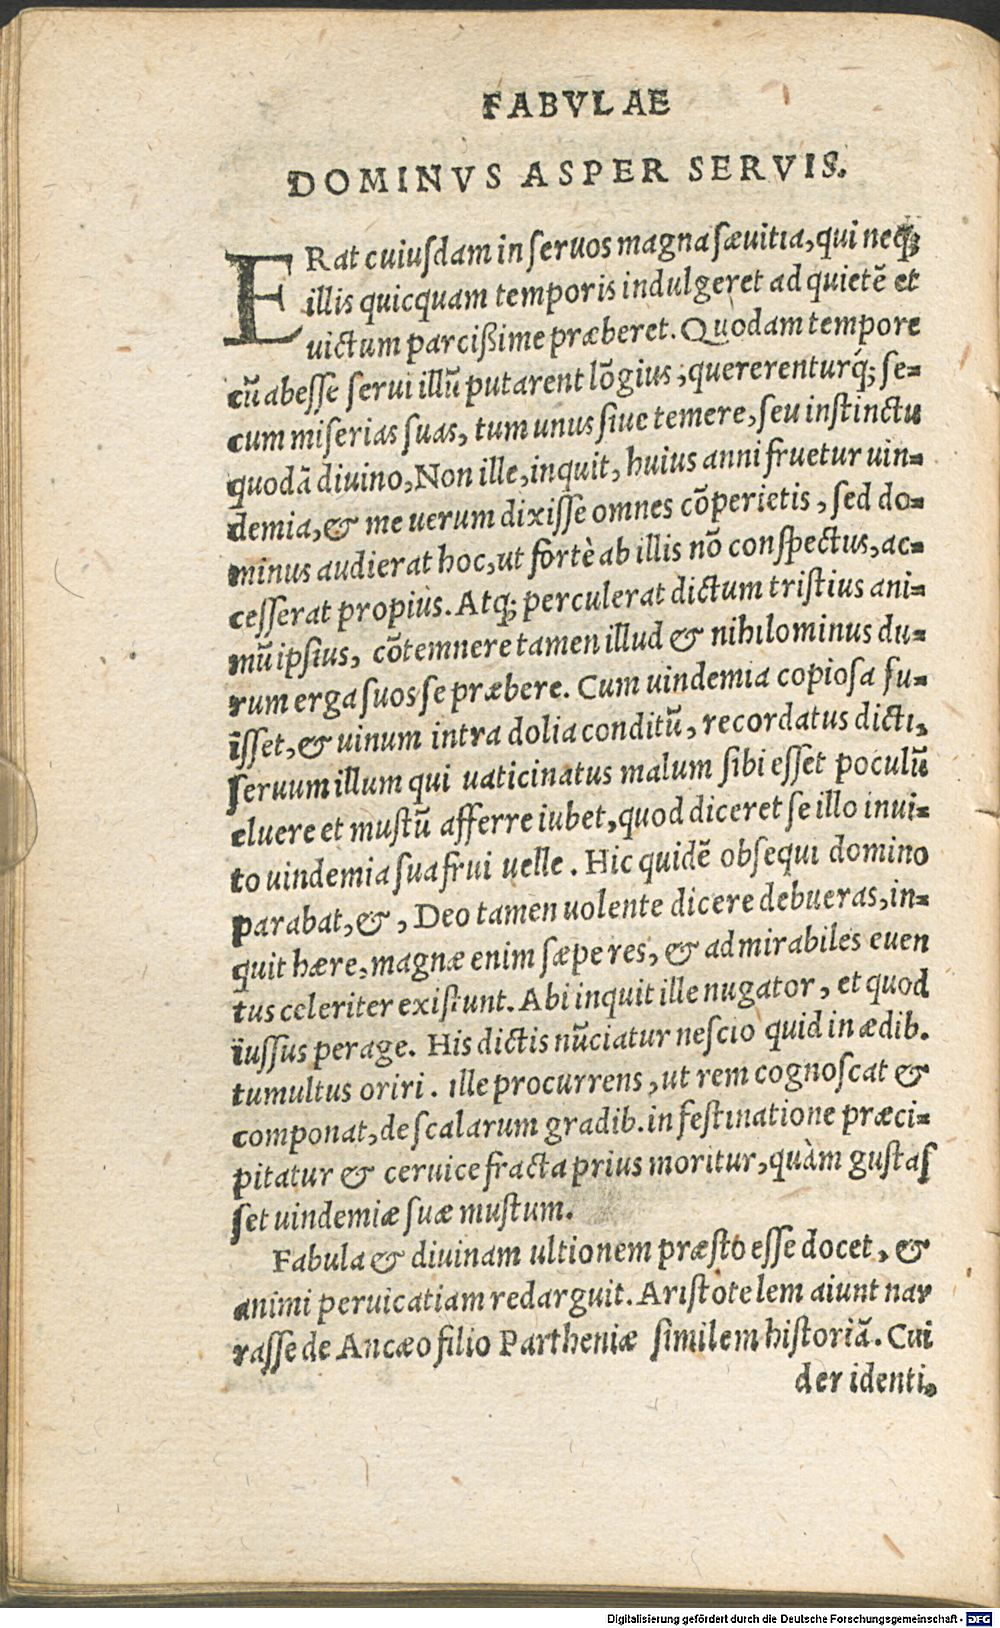 FABVLAE
DOMINVS ASPER SERVIS.
ERat cuiusdam in seruos magna sæuitia, qui neq;
illis quicquam temporis indulgeret ad quietē et
uictum parcißime præberet. Quodam tempore
cū abesse serui illū putarent lōgius, quererenturq́; se-
cum miserias suas, tum unus siue temere, seu instinctu
quodā diuino, Non ille, inquit, huius anni fruetur uin-
demia, & me uerum dixisse omnes cōperietis, sed do-
minus audierat hoc, ut fortè ab illis nō conspectus, ac-
cesserat propius. Atq; perculerat dictum tristius ani-
mū ipsius, cōtemnere tamen illud & nihilominus du-
rum erga suos se præbere. Cum uindemia copiosa fu-
isset, & uinum intra dolia conditū, recordatus dicti,
seruum illum qui uaticinatus malum sibi esset poculū
eluere et mustū afferre iubet, quod diceret se illo inui-
to uindemia sua frui uelle. Hic quidē obsequi domino
parabat, &, Deo tamen uolente dicere debueras, in-
quit hære, magnæ enim sæpe res, & admirabiles euen
tus celeriter existunt. Abi inquit ille nugator, et quod
iussus perage. His dictis nūciatur nescio quid in ædib.
tumultus oriri. ille procurrens, ut rem cognoscat &
componat, de scalarum gradib. in festinatione præci-
pitatur & ceruice fracta prius moritur, quàm gustas
set uindemiæ suæ mustum.
Fabula & diuinam ultionem præsto esse docet, &
animi peruicatiam redarguit. Aristotelem aiunt nar
rasse de Ancæo filio Partheniæ similem historiā. Cui
der identi.
Digitalisierung gefördert durch die Deutsche Forschungsgemeinschaft - DFG